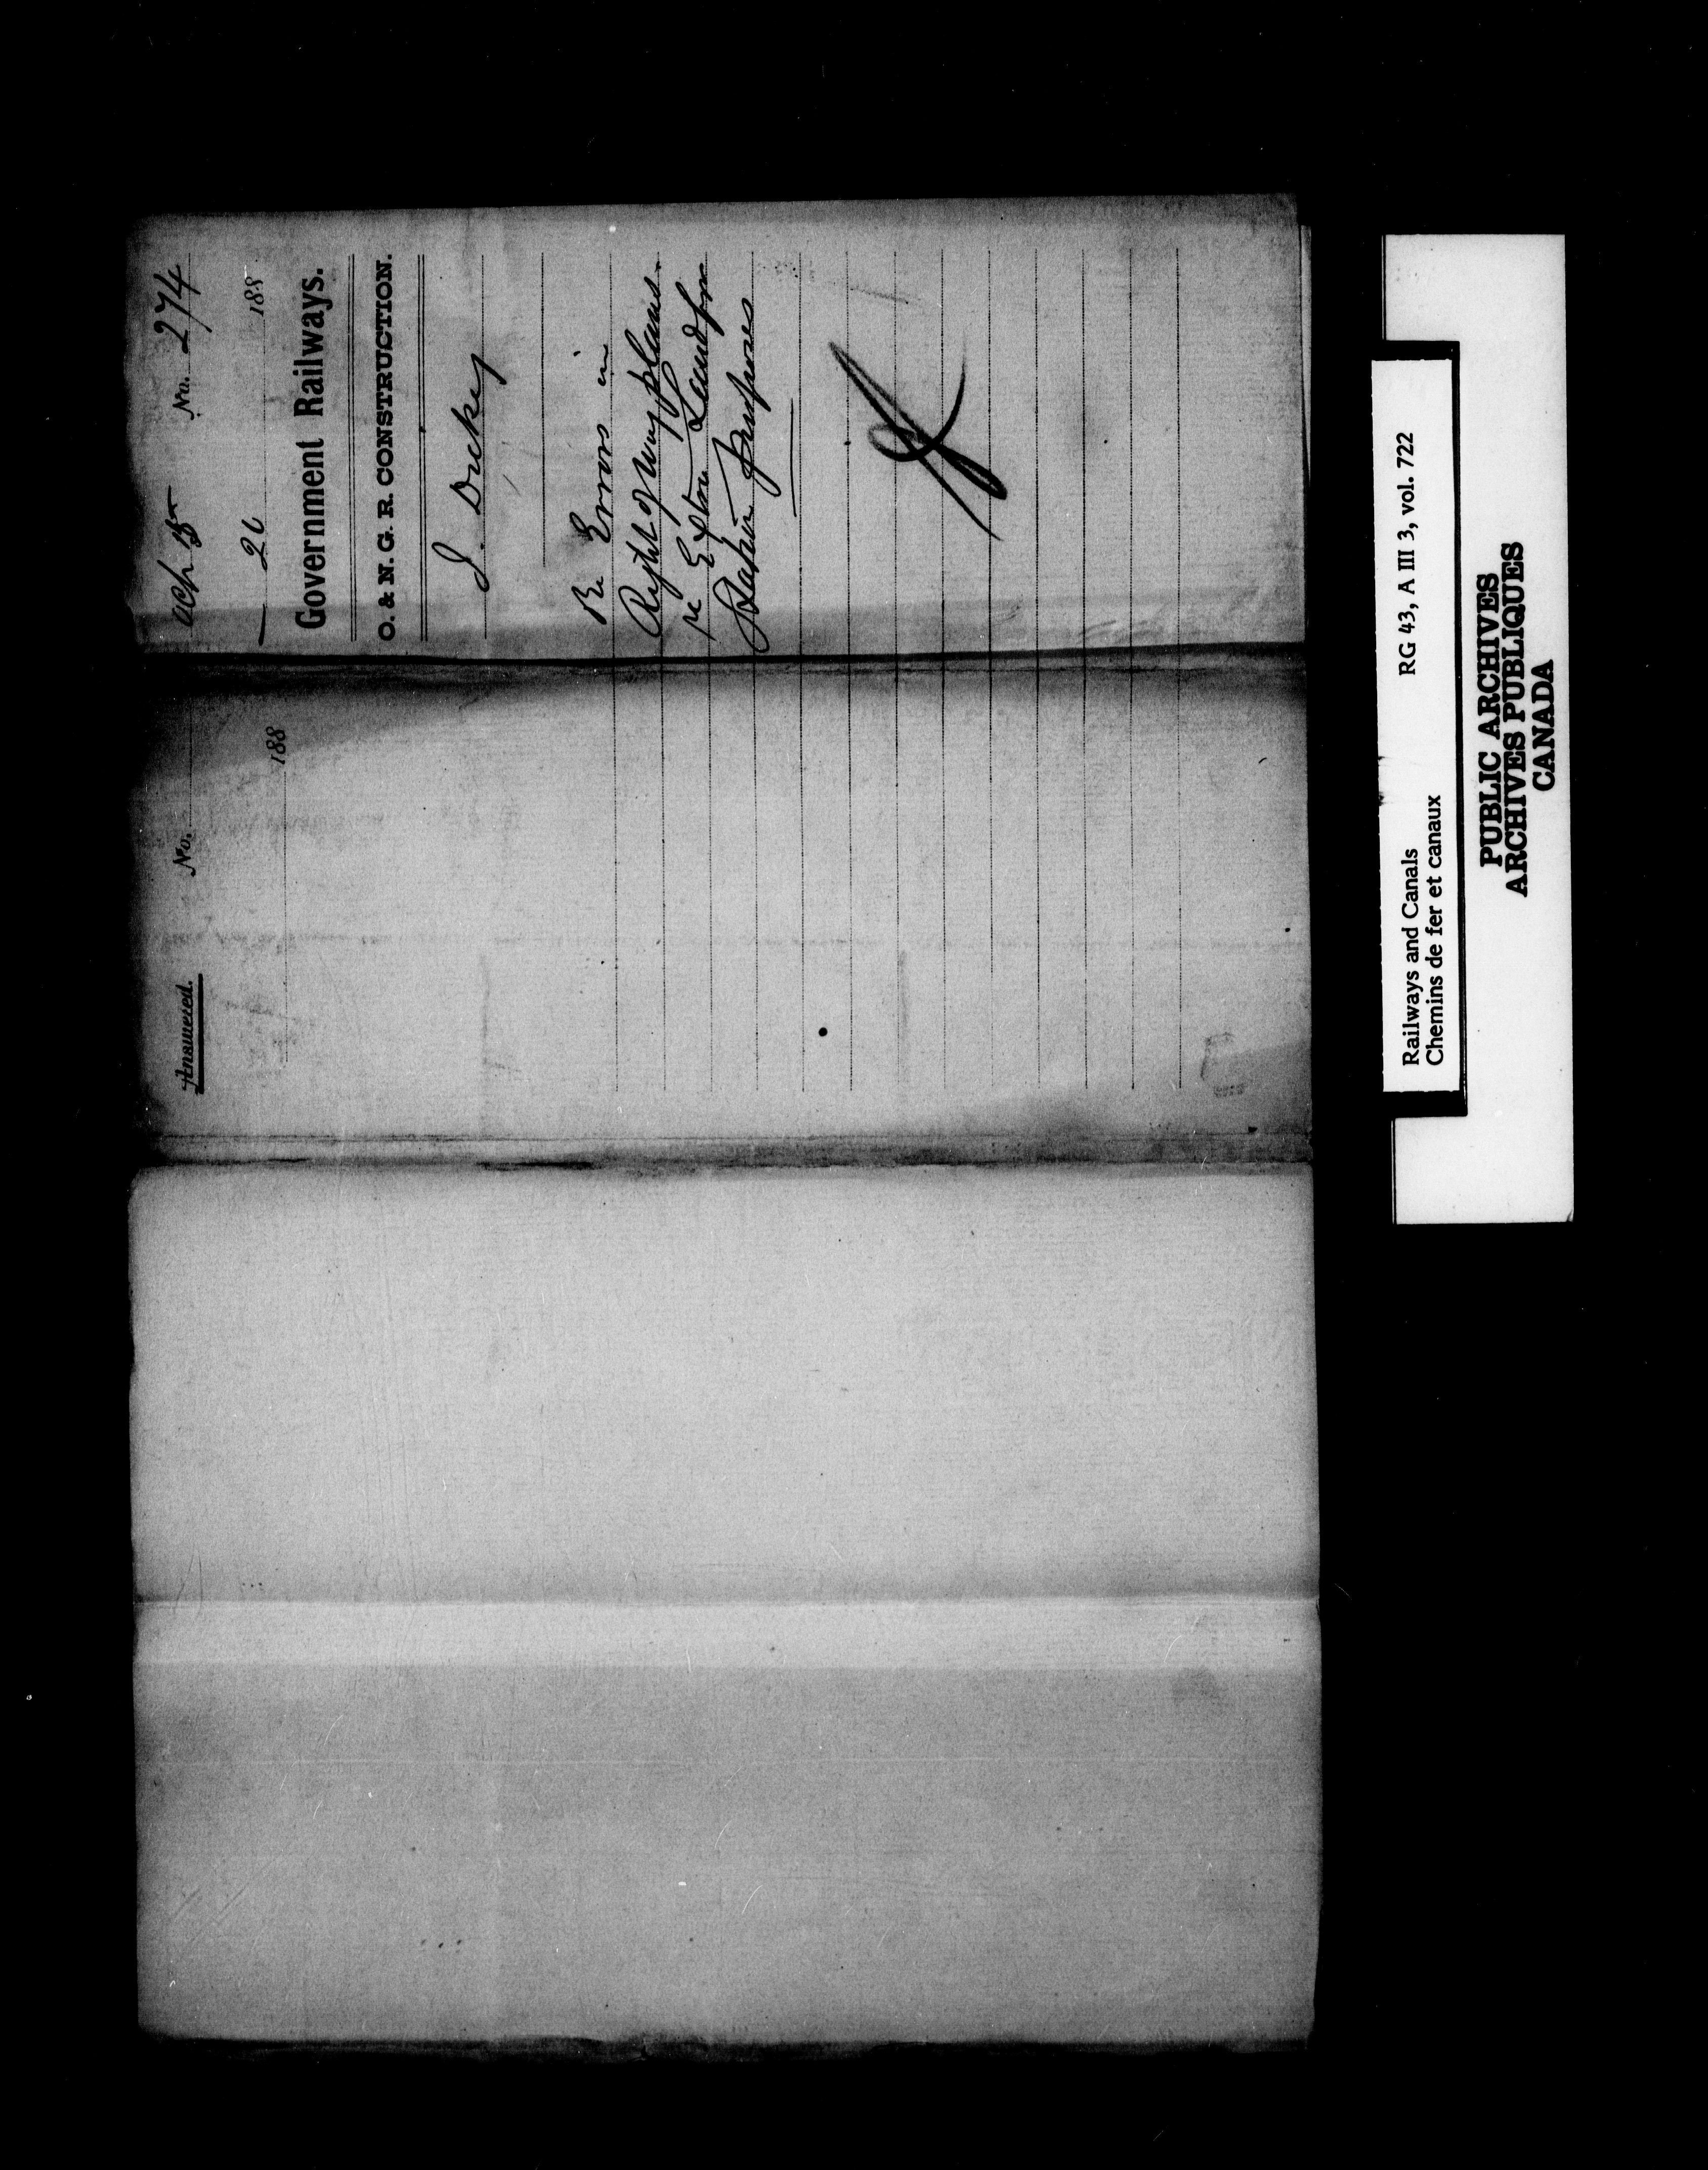 No. 274
— 26 188
Government Railways.
O. & N. G. R. CONSTRUCTION.
Re Errors in
Right of Way plans.
re Extra Land for
Station purposes
No.
188
Answered.
Railways and Canals RG 43, A III 3, vol. 722
Chemins de fer et canaux
PUBLIC ARCHIVES
ARCHIVES PUBLIQUES
CANADA